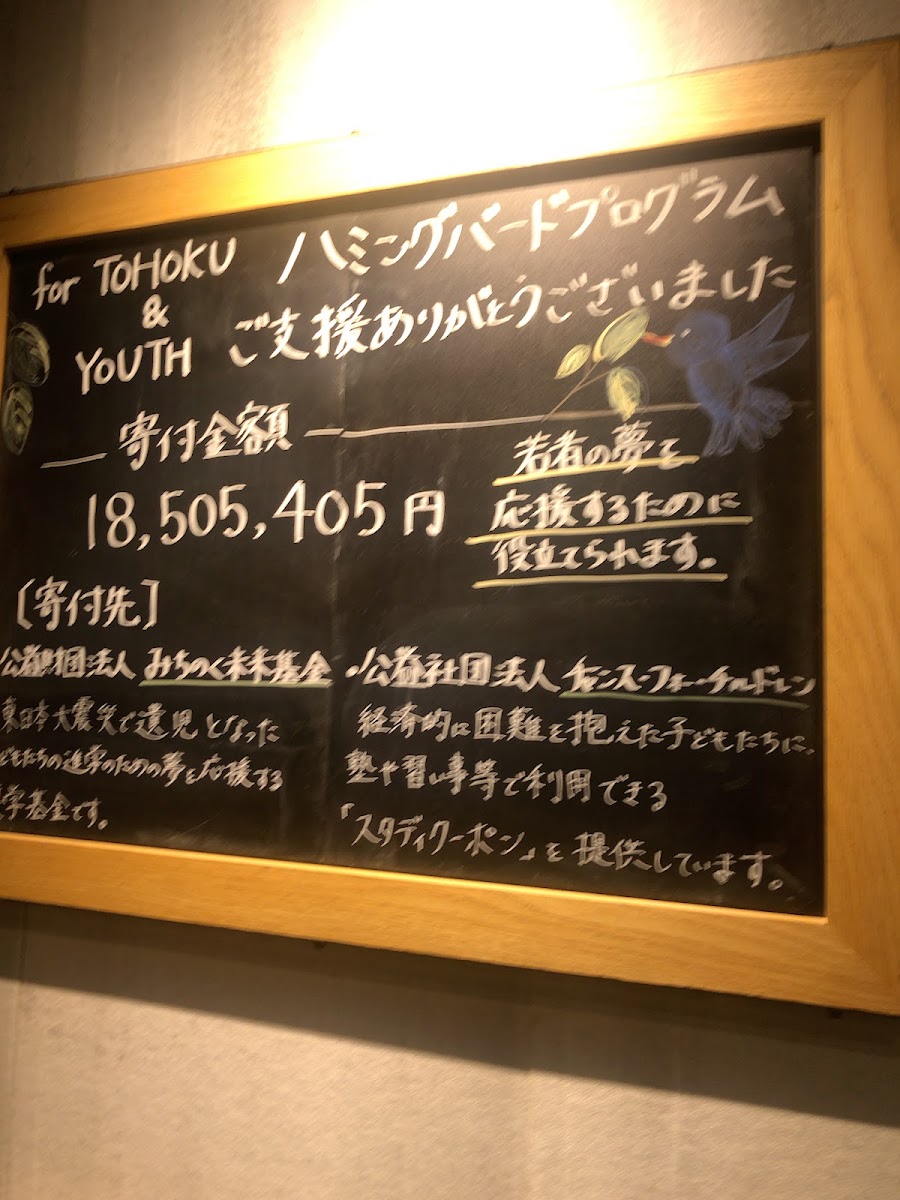 for TOHOKU
&
YOUTH
ハミングバードプログラム
ご支援ありがとうございました
寄付金額
18,505,405円
若者の夢を
応援するために
役立てられます。
[寄付先]
公益財団法人 みちのく未来基金
東日本大震災で遺児となった
どもたちの進学のための夢を応援する
学基金です。
・公益社団法人 チャンス・フォー・チルドレン
経済的に困難を抱えた子どもたちに、
塾や習い事等で利用できる
「スタディクーポン」を提供しています。